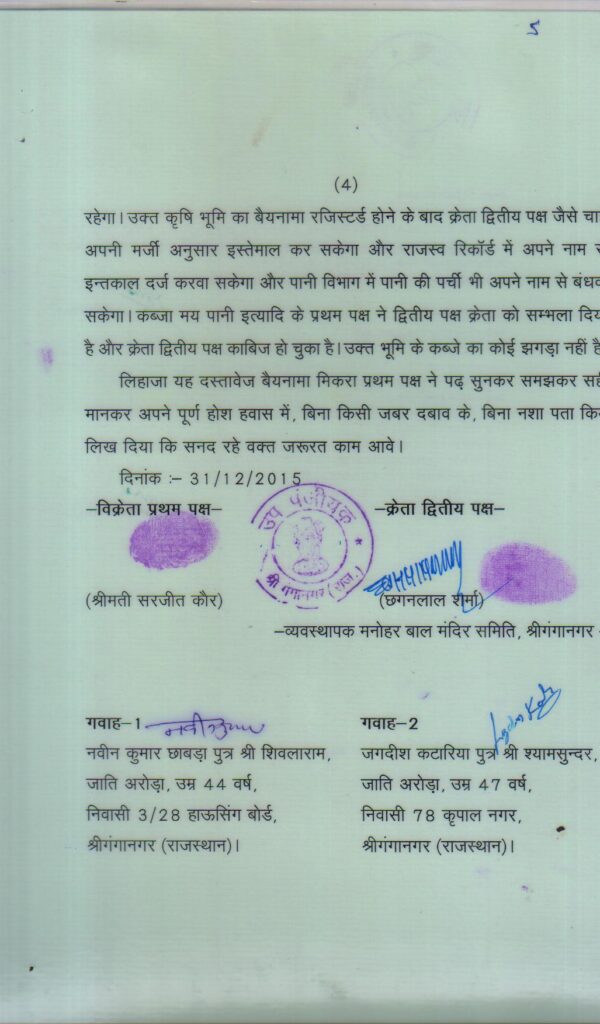 5
(4)
रहेगा। उक्त कृषि भूमि का बैयनामा रजिस्टर्ड होने के बाद क्रेता द्वितीय पक्ष जैसे चा
अपनी मर्जी अनुसार इस्तेमाल कर सकेगा और राजस्व रिकॉर्ड में अपने नाम
इन्तकाल दर्ज करवा सकेगा और पानी विभाग में पानी की पर्ची भी अपने नाम से बंधव
सकेगा। कब्जा मय पानी इत्यादि के प्रथम पक्ष ने द्वितीय पक्ष क्रेता को सम्भला दिय
है और क्रेता द्वितीय पक्ष काबिज हो चुका है। उक्त भूमि के कब्जे का कोई झगड़ा नहीं है
लिहाजा यह दस्तावेज बैयनामा मिकरा प्रथम पक्ष ने पढ़ सुनकर समझकर सही
मानकर अपने पूर्ण होश हवास में, बिना किसी जबर दबाव के, बिना नशा पता किय
लिख दिया कि सनद रहे वक्त जरूरत काम आवे।
दिनांक :– 31/12/2015
–विक्रेता प्रथम पक्ष– –क्रेता द्वितीय पक्ष–
उप पंजीयक
श्री गंगानगर (राज.)
(श्रीमती सरजीत कौर) (छगनलाल शर्मा)
–व्यवस्थापक मनोहर बाल मंदिर समिति, श्रीगंगानगर
गवाह–1
नवीन कुमार छाबड़ा पुत्र श्री शिवलाराम,
जाति अरोड़ा, उम्र 44 वर्ष,
निवासी 3/28 हाऊसिंग बोर्ड,
श्रीगंगानगर (राजस्थान)।
गवाह–2
जगदीश कटारिया पुत्र श्री श्यामसुन्दर,
जाति अरोड़ा, उम्र 47 वर्ष,
निवासी 78 कृपाल नगर,
श्रीगंगानगर (राजस्थान)।